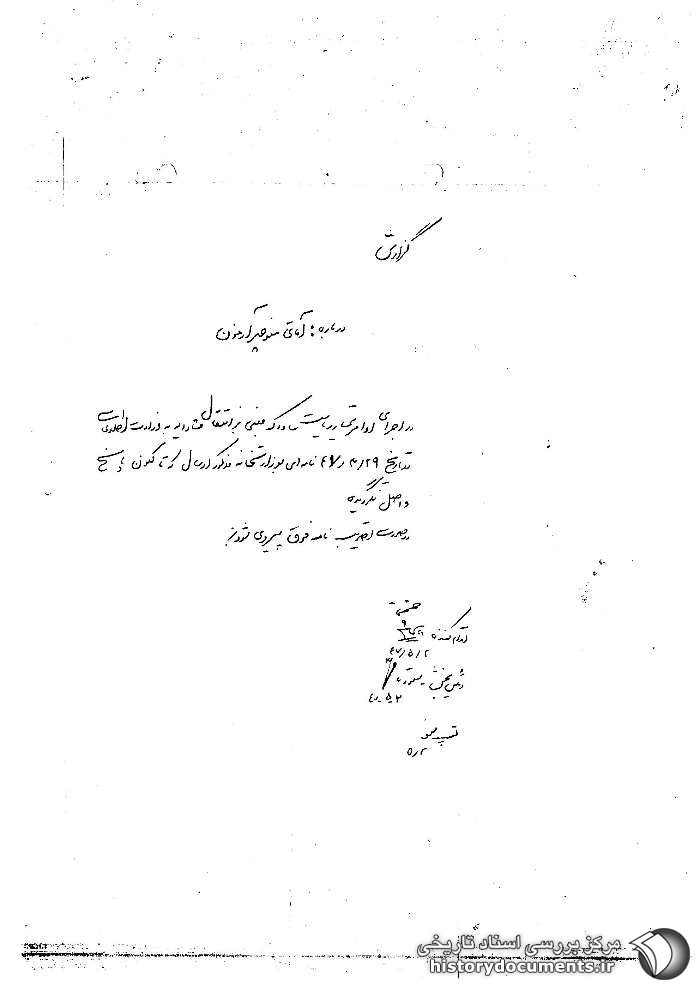 گزارش
درباره: آقای منوچهر آزمون
در اجرای اوامر تیمسار ریاست ساواک مبنی بر انتقال مشارالیه به وزارت اطلاعات
در تاریخ ۴۷/۴/۲۹ نامه‌ای بوزارتخانه مذکور ارسال که تا کنون پاسخ
واصل نگردیده
در صورت تصویب نامه فوق پیروی شود
اقدام کننده
۴۷/۵/۲
رئیس بخش
۴۷-۵-۲
۵/۲
مرکز بررسی اسناد تاریخی
historydocuments.ir